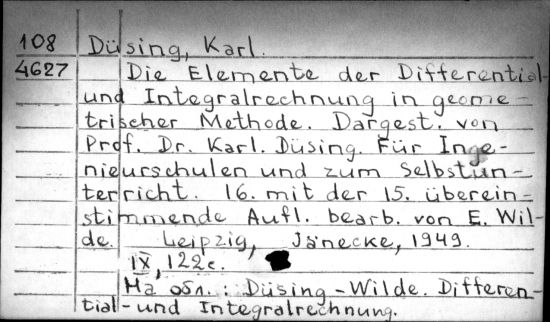 108 Düsing, Karl.
4627 Die Elemente der Differential-
und Integralrechnung in geome-
trischer Methode. Dargest. von
Prof. Dr. Karl. Düsing. Für Inge-
nieurschulen und zum Selbstun-
terricht. 16. mit der 15. überein-
stimmende Aufl. bearb. von E. Wil-
de. Leipzig, Jänecke, 1949.
IX, 122c.
На обл.: Düsing-Wilde. Differen-
tial- und Integralrechnung.